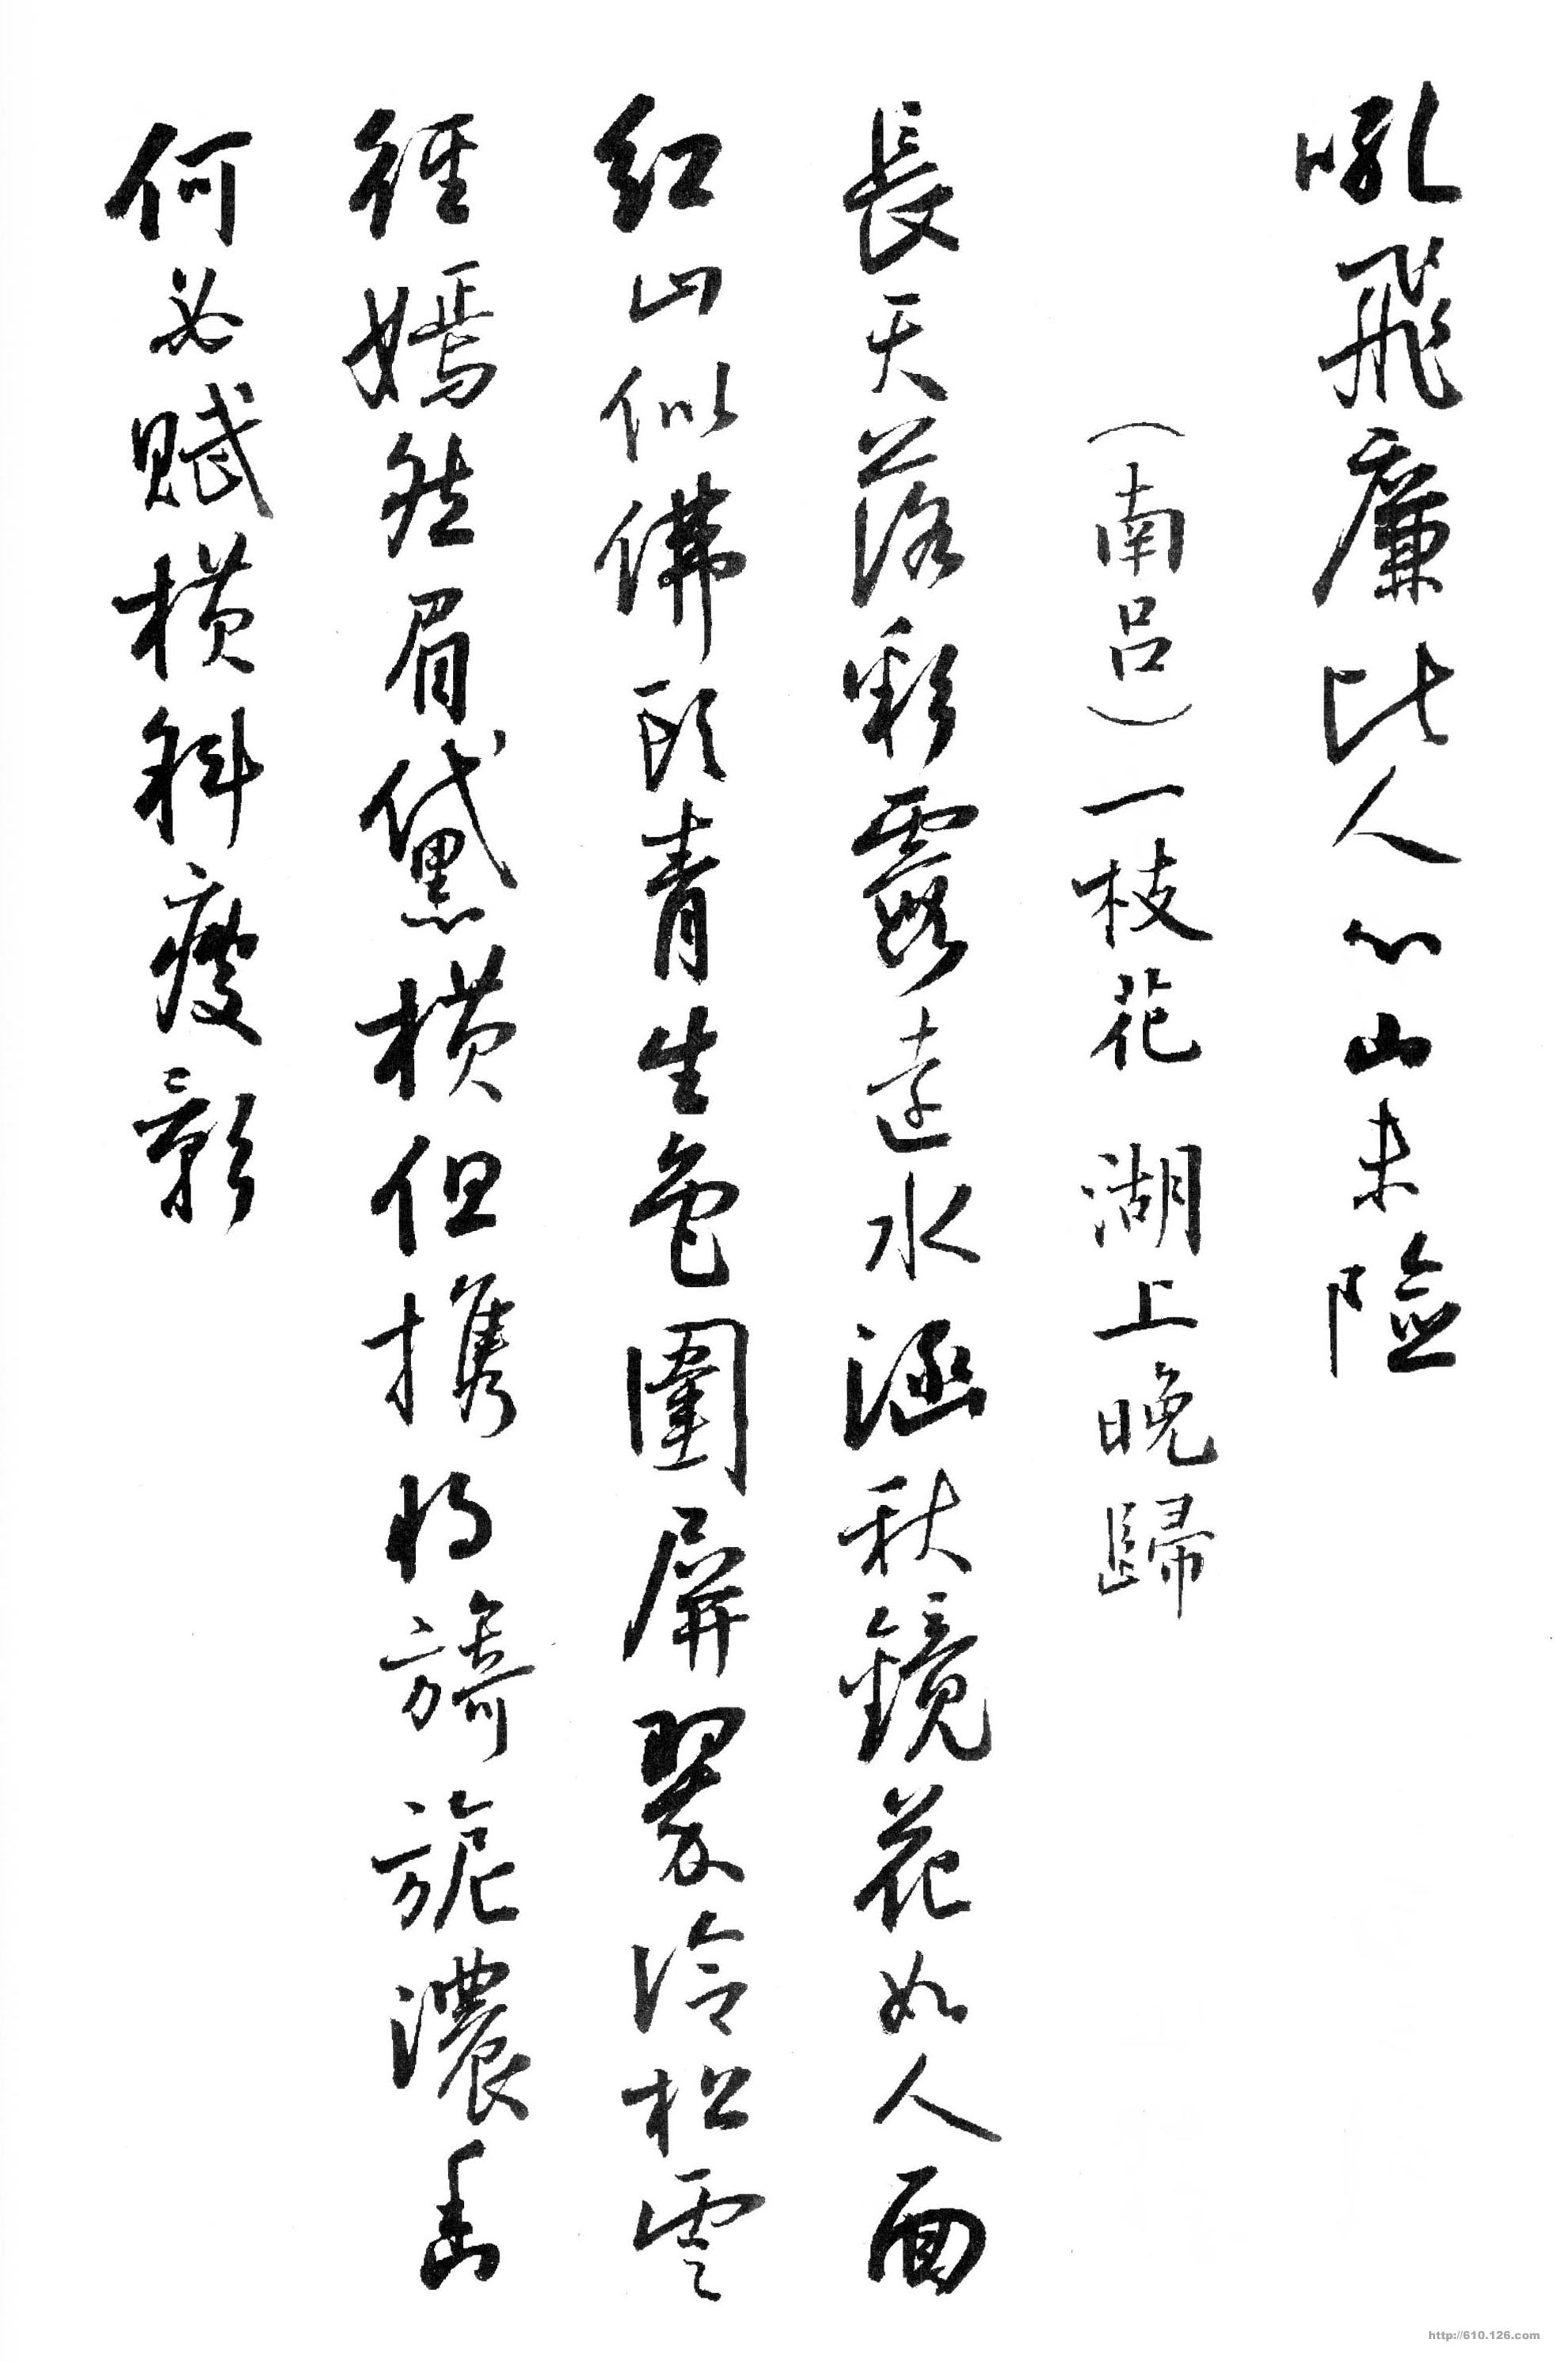 吼飛廉比人心山未險
（南呂）一枝花 湖上晚歸
長天落彩霞遠水涵秋鏡花如人面
紅山似佛頭青生色圍屏翠冷松雲
徑嫣然眉黛橫但攜將旖旎濃香
何必賦橫斜瘦影
http://610.126.com